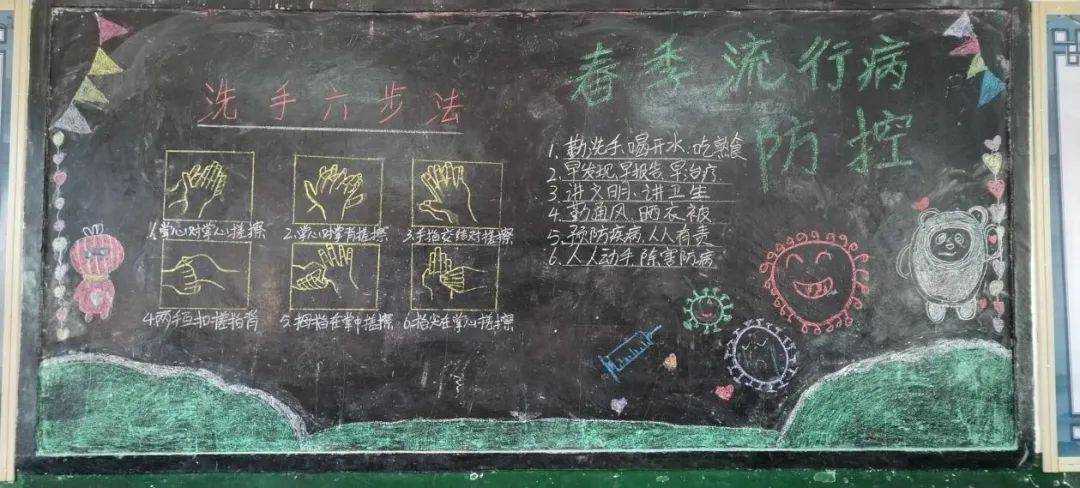 洗手六步法
1.掌心对掌心搓擦
2.掌心对掌背搓擦
3.手指交错对搓擦
4.两手互扣搓指背
5.拇指在掌中搓擦
6.指尖在掌心搓擦
春季流行病
防控
1.勤洗手.喝开水.吃熟食
2.早发现.早报告.早治疗
3.讲文明.讲卫生
4.勤通风.晒衣被
5.预防疾病.人人有责
6.人人动手.除害防病